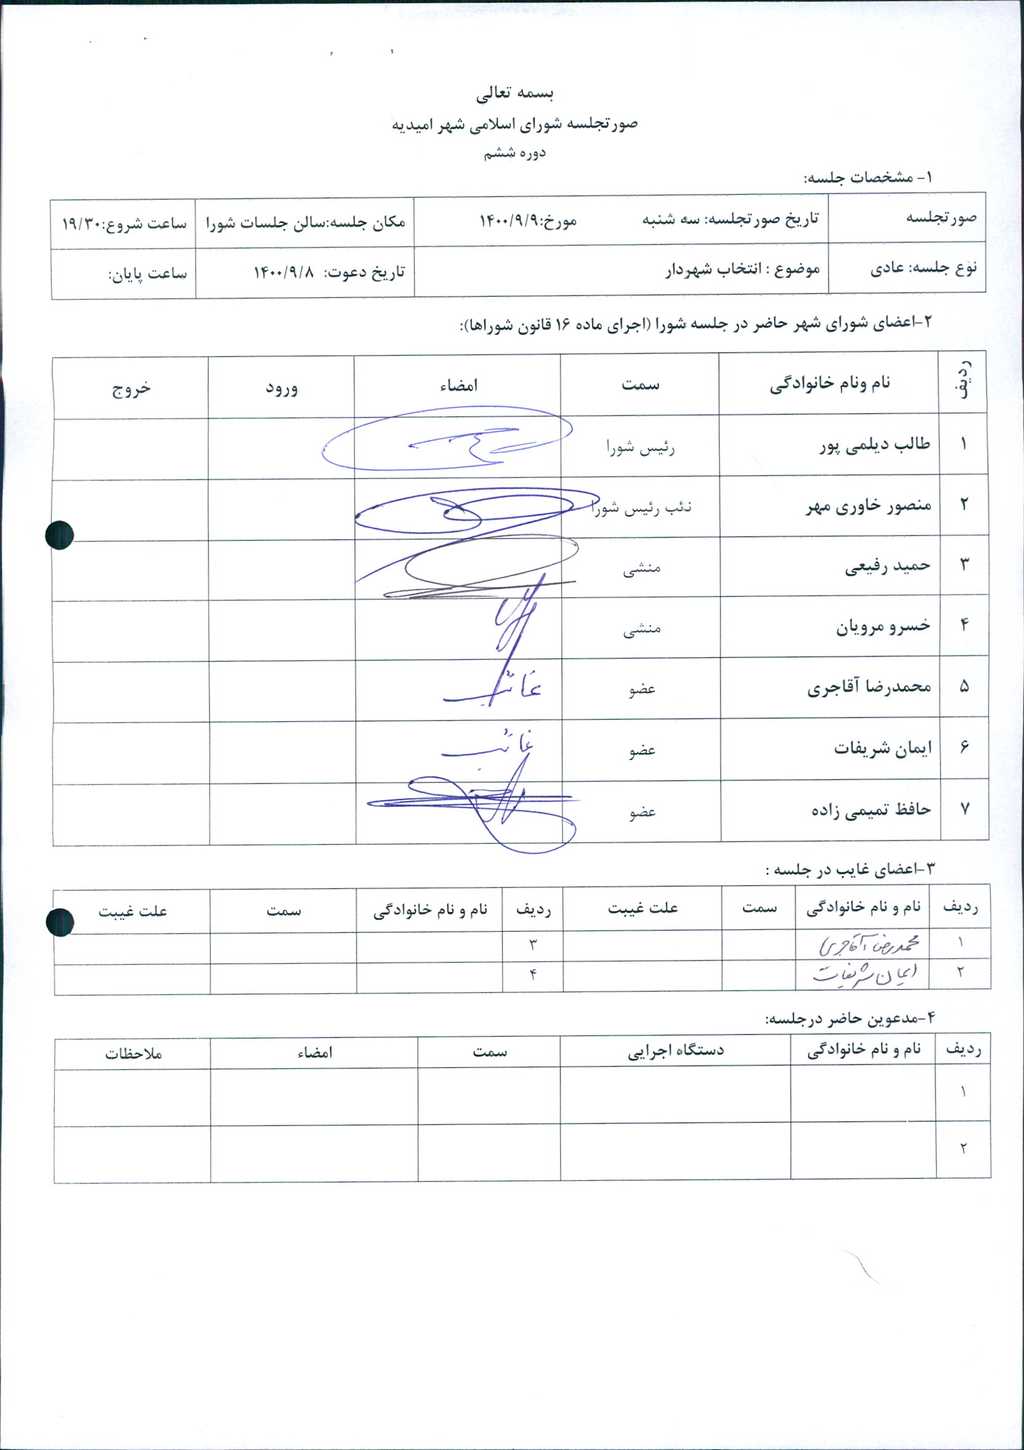 بسمه تعالی
صورتجلسه شورای اسلامی شهر امیدیه
دوره ششم
۱- مشخصات جلسه:
صورتجلسه تاریخ صورتجلسه: سه شنبه مورخ:۱۴۰۰/۹/۹ مکان جلسه:سالن جلسات شورا ساعت شروع:۱۹/۳۰
نوع جلسه: عادی موضوع : انتخاب شهردار تاریخ دعوت: ۱۴۰۰/۹/۸ ساعت پایان:
۲-اعضای شورای شهر حاضر در جلسه شورا (اجرای ماده ۱۶ قانون شوراها):
ردیف نام ونام خانوادگی سمت امضاء ورود خروج
۱ طالب دیلمی پور رئیس شورا
۲ منصور خاوری مهر نئب رئیس شورا
۳ حمید رفیعی منشی
۴ خسرو مرویان منشی
۵ محمدرضا آقاجری عضو غائب
۶ ایمان شریفات عضو غائب
۷ حافظ تمیمی زاده عضو
۳-اعضای غایب در جلسه :
ردیف نام و نام خانوادگی سمت علت غیبت ردیف نام و نام خانوادگی سمت علت غیبت
۱ محمدرضا آقاجری ۳
۲ ایمان شریفات ۴
۴-مدعوین حاضر درجلسه:
ردیف نام و نام خانوادگی دستگاه اجرایی سمت امضاء ملاحظات
۱
۲